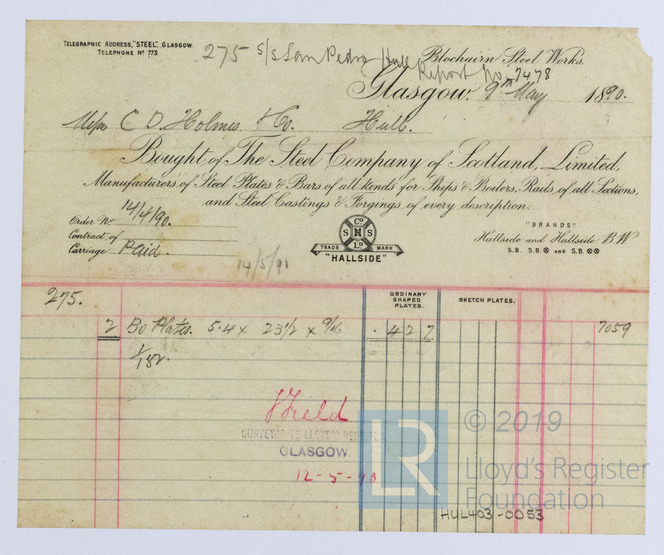 TELEGRAPHIC ADDRESS, "STEEL", GLASGOW.
TELEPHONE No 773.
275 S/S San Pedro Hull
Blochairn Steel Works.
Report No 7478
Glasgow, 9th May 1890.
Messrs C. D. Holmes & Co. Hull.
Bought of The Steel Company of Scotland, Limited,
Manufacturers of Steel Plates & Bars of all kinds for Ships & Boilers, Rails of all Sections,
and Steel Castings & Forgings of every description.
Order No 14/4/90.
Contract of
Carriage Paid.
Co S S Ld
TRADE MARK
"HALLSIDE"
"BRANDS"
Hallside and Hallside B.W
S.B. S.B. AND S.B.
14/5/91
275.
ORDINARY SHAPED PLATES.
SKETCH PLATES.
2 Bo Plates. 5.4 x 23 1/2 x 9/16 . 4 2 7 7059
1/182.
Field
SURVEYOR TO LLOYD'S REGISTER
GLASGOW.
12-5-90
LR
© 2019
Lloyd's Register
Foundation
HUL403-0053